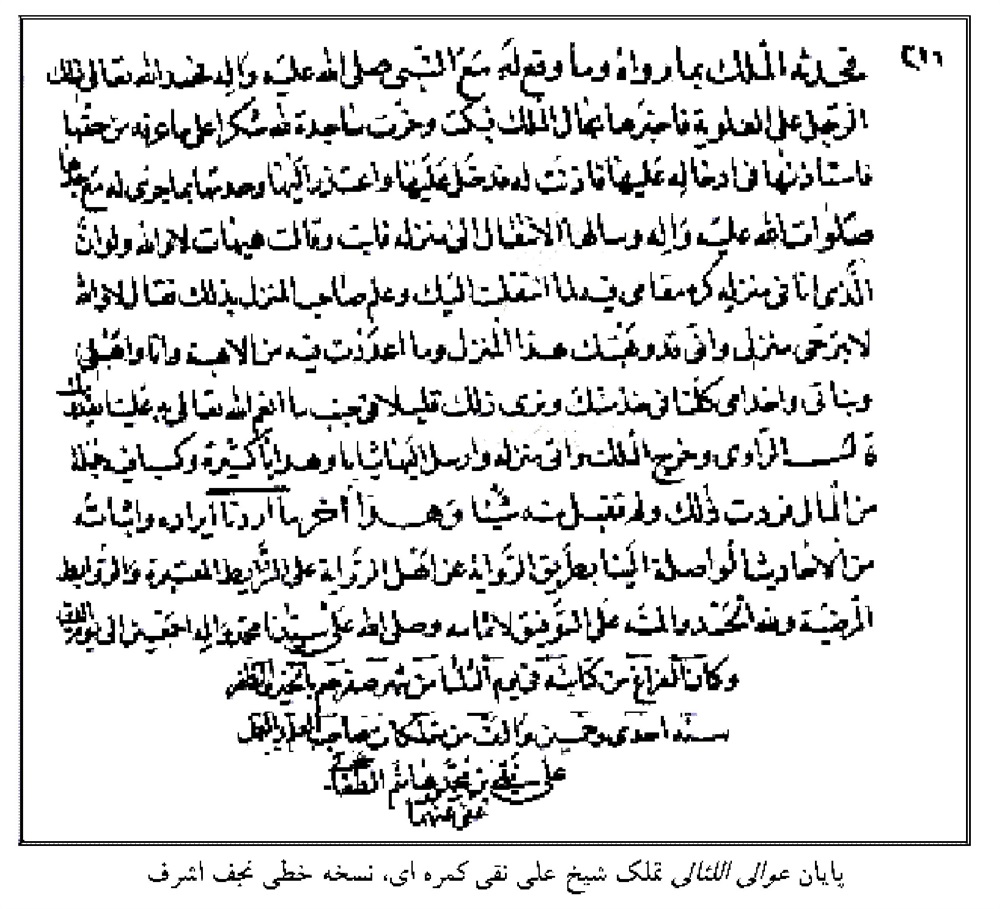 ٢١٦
فحدثه الملك بما رواه وما وقع له مع النبى صلى الله عليه واله فحمد الله تعالى ذلك
الرجل على العلوية فاخبرها بحال الملك فبكت وخرت ساجدة لله شكرا على ما عرفه من حقها
فاستاذنها فى ادخاله عليها فاذنت له فدخل عليها واعتذر اليها وحدثها بما جرى له مع جدها
صلوات الله عليه واله وسالها الانتقال الى منزله فابت وقالت هيهات لا والله ولو ان
الذى انا فى منزله كره مقامى فيه لما انتقلت اليك وعلم صاحب المنزل بذلك فقال لا والله
لا تبرحى منزلى وانى قد وهبتك هذا المنزل وما اعددت فيه من الاهبة وانا واهلى
وبناتى واخدامى كلنا فى خدمتك ونرى ذلك قليلا فى جنب ما انعم الله تعالى به علينا
قال الراوى وخرج الملك واتى منزله وارسل اليها ثيابا وهدايا كثيرة وكيسا فيه جملة
من المال فردت ذلك ولم تقبل منه شيئا وهذا اخر ما اردنا ايراده واثباته
من الاحاديث الواصلة الينا بطريق الرواية عن اهل الرواية على الشرايط المعتبرة والروابط
المرضية ولله الحمد والمنة على التوفيق لاتمامه وصلى الله على سيدنا محمد واله اجمعين الى يوم الدين
وكان الفراغ من كتابته فى يوم الثلثا من شهر صفر ختم بالخير والظفر
سنة احدى وخمسين والف من
على نقى بن محمد هاشم
عفى عنهما
پایان عوالی اللئالی تملک شیخ علی نقی کمره ای، نسخه خطی نجف اشرف